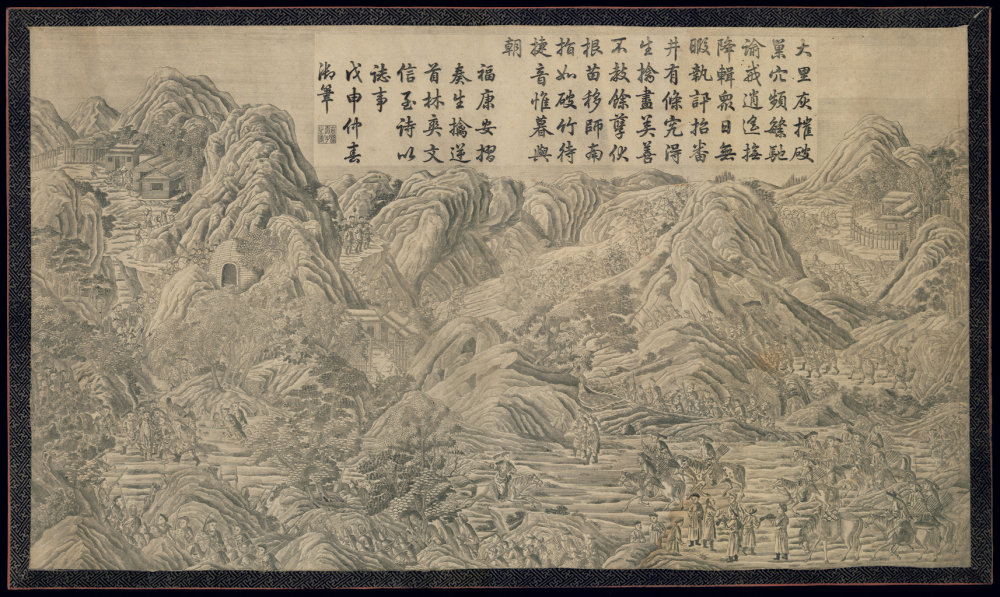 大里灰摧破
巢穴頻繁馳
諭戒逍遙撫
降輯衆日無
暇執訊招番
并有條完淂
生擒盡美善
不教餘孽伏
根苗移師南
指如破竹待
捷音惟暮與
朝
福康安摺
奏生擒逆
首林爽文
信至詩以
誌事
戊申仲春
御筆